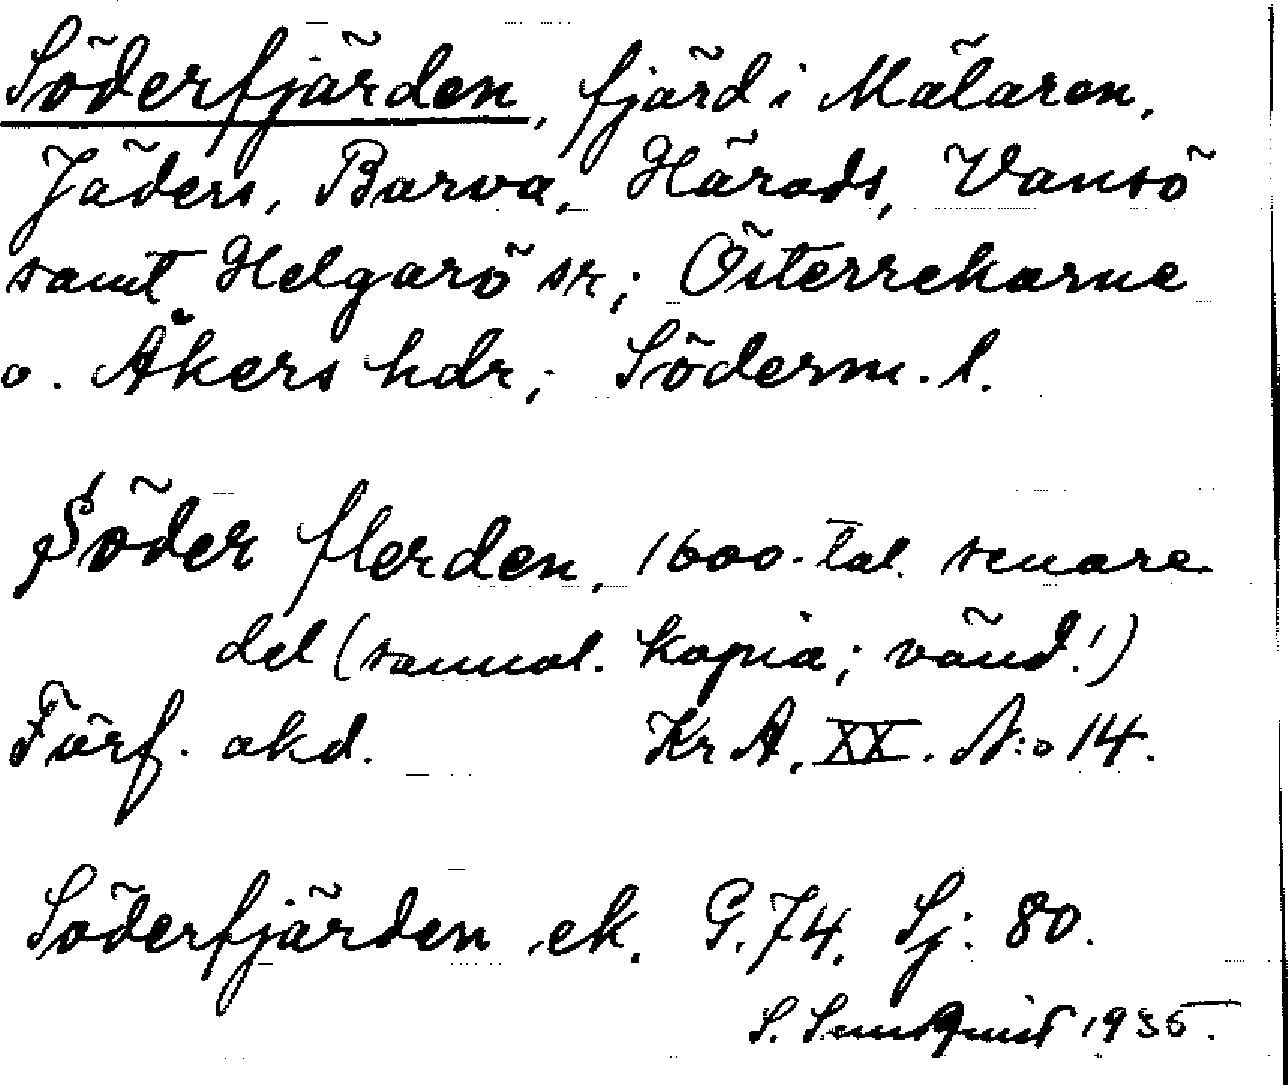 Söderfjärden, fjärd i Mälaren,
Jäders, Barva, Härads, Vansö
samt Helgarö sr; Österrekarne
o. Åkers hdr; Söderm. l.
Söder flerden, 1600-tal. senare
del (samal. kopia; vänd!)
Förf. okd. Kr A. XX. N:o 14.
Söderfjärden ek. G. 74. Sj. 80.
S. Sundquist 1935.